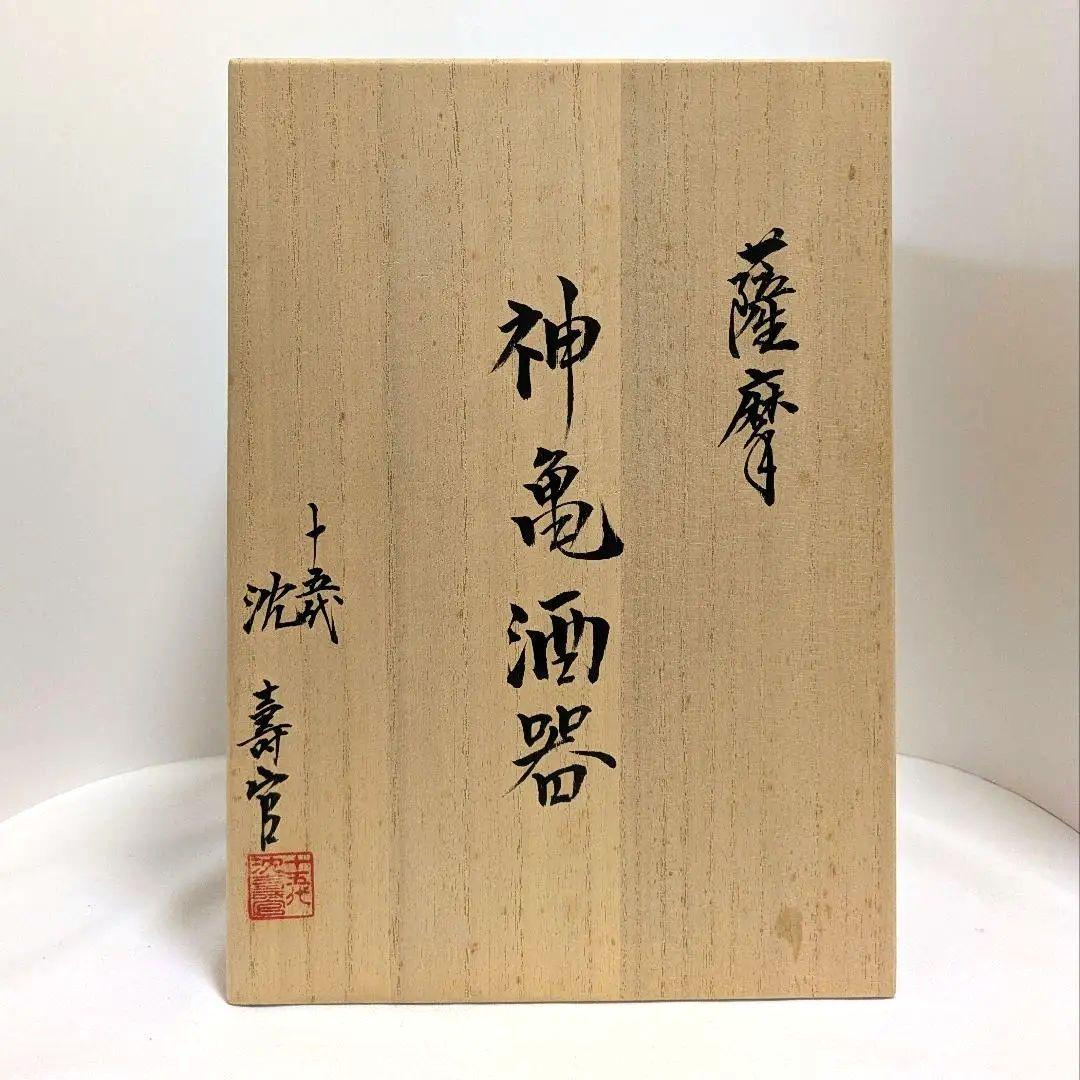 薩摩
神亀酒器
十五代
沈壽官
十五代
沈壽官